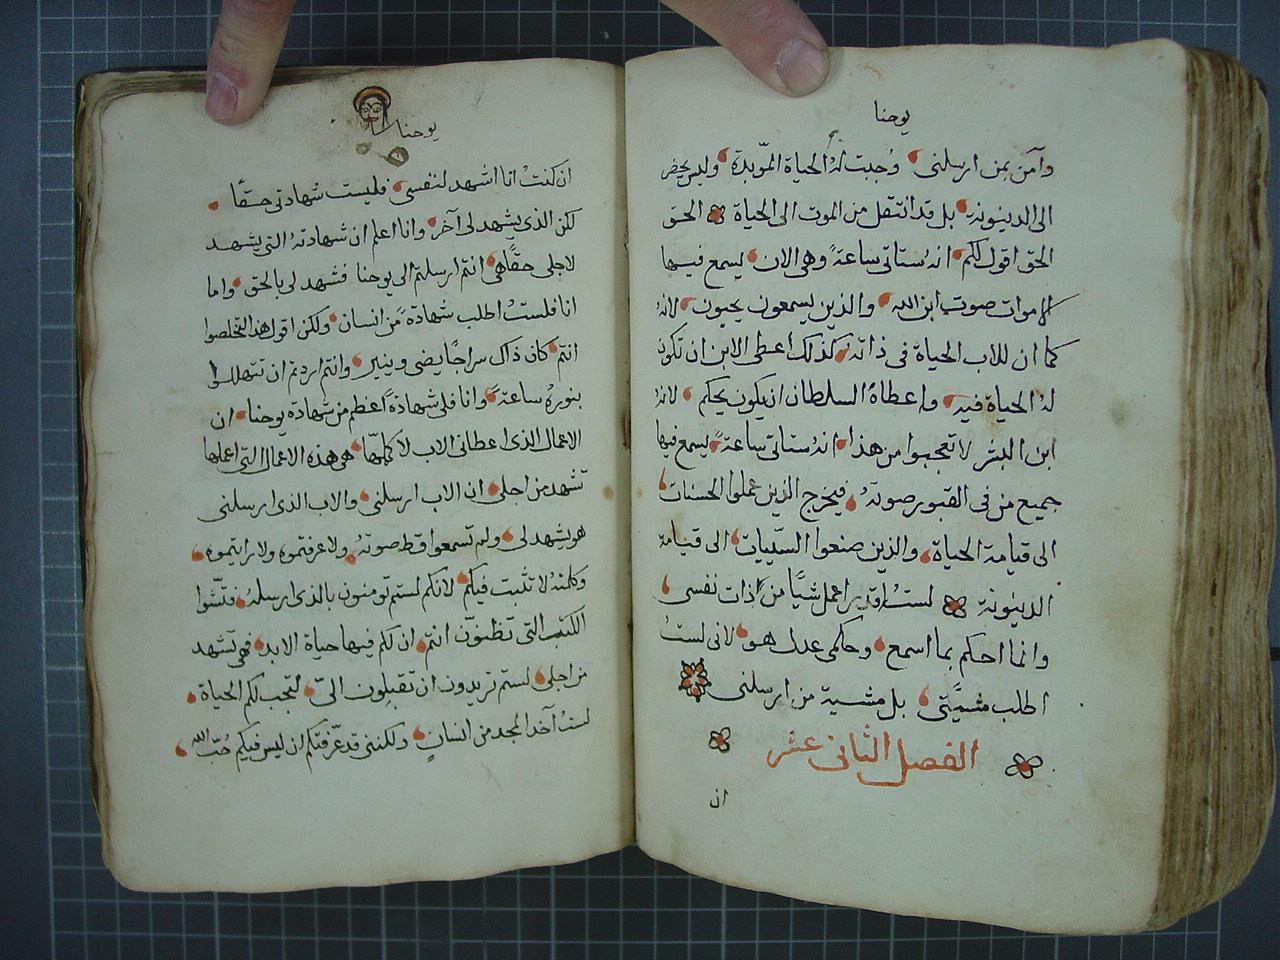 يوحنا
وآمن بمن ارسلنى وُجبت لهُ الحياة المؤبدة وليس يحضر
الى الدينونة بل قد انتقل من الموت الى الحياة الحق
الحق اقول لكم انه ستاتى ساعةً وهى الان يسمع فيها
الاموات صوت ابن الله والذين يسمعون يحيون لانهُ
كما ان للاب الحياة فى ذاته كذلك اعطى الابن ان تكون
لهُ الحياة فيه واعطاهُ السلطان ان يكون يحكم لانهُ
ابن البشر لا تعجبوا من هذا انهُ ستاتى ساعةً يسمع فيها
جميع من فى القبور صوتهُ فيخرج الذين عملوا الحسنات
الى قيامة الحياة والذين صنعوا السيّيات الى قيامة
الدينونة لستُ اقدر اعمل شيًا من ذات نفسى
وانما احكم بما اسمع وحكمى عدل هو لانى لستُ
اطلب مشيّتى بل مشية من ارسلنى
الفصل الثانى عشر
ان
يوحنا
ان كنتُ انا اشهد لنفسى فليست شهادتى حقًا
لكن الذى يشهد لى آخر وانا اعلم ان شهادتهُ التى يشهد
لاجلى حقًا هى انتم ارسلتم الى يوحنا فشهد لى بالحق واما
انا فلستُ اطلب شهادةً من انسان ولكن اقول هذا لتخلصوا
انتم كان ذاك سراجًا يضى وينير وانتم اردتم ان تتهللوا
بنوره ساعةً وانا فلى شهادةً اعظم من شهادة يوحنا ان
الاعمال الذى اعطانى الاب لاكملّها هى هذه الاعمال التى اعملها
تشهد من اجلى ان الاب ارسلنى والاب الذى ارسلنى
هو يشهد لى ولم تسمعوا قط صوتهُ ولا عرفتموه ولا رايتموه
وكلمتهُ لا تثبت فيكم لانكم لستم تومنون بالذى ارسلهُ فتّشوا
الكتب التى تظنون انتم ان لكم فيها حياة الابد فهى تشهد
من اجلى لستم تريدون ان تقبلون الىّ لتجب لكم الحياة
لستُ آخذ المجد من انسانٍ ولكننى قد عرّفتكم ان ليس فيكم حُبّ الله